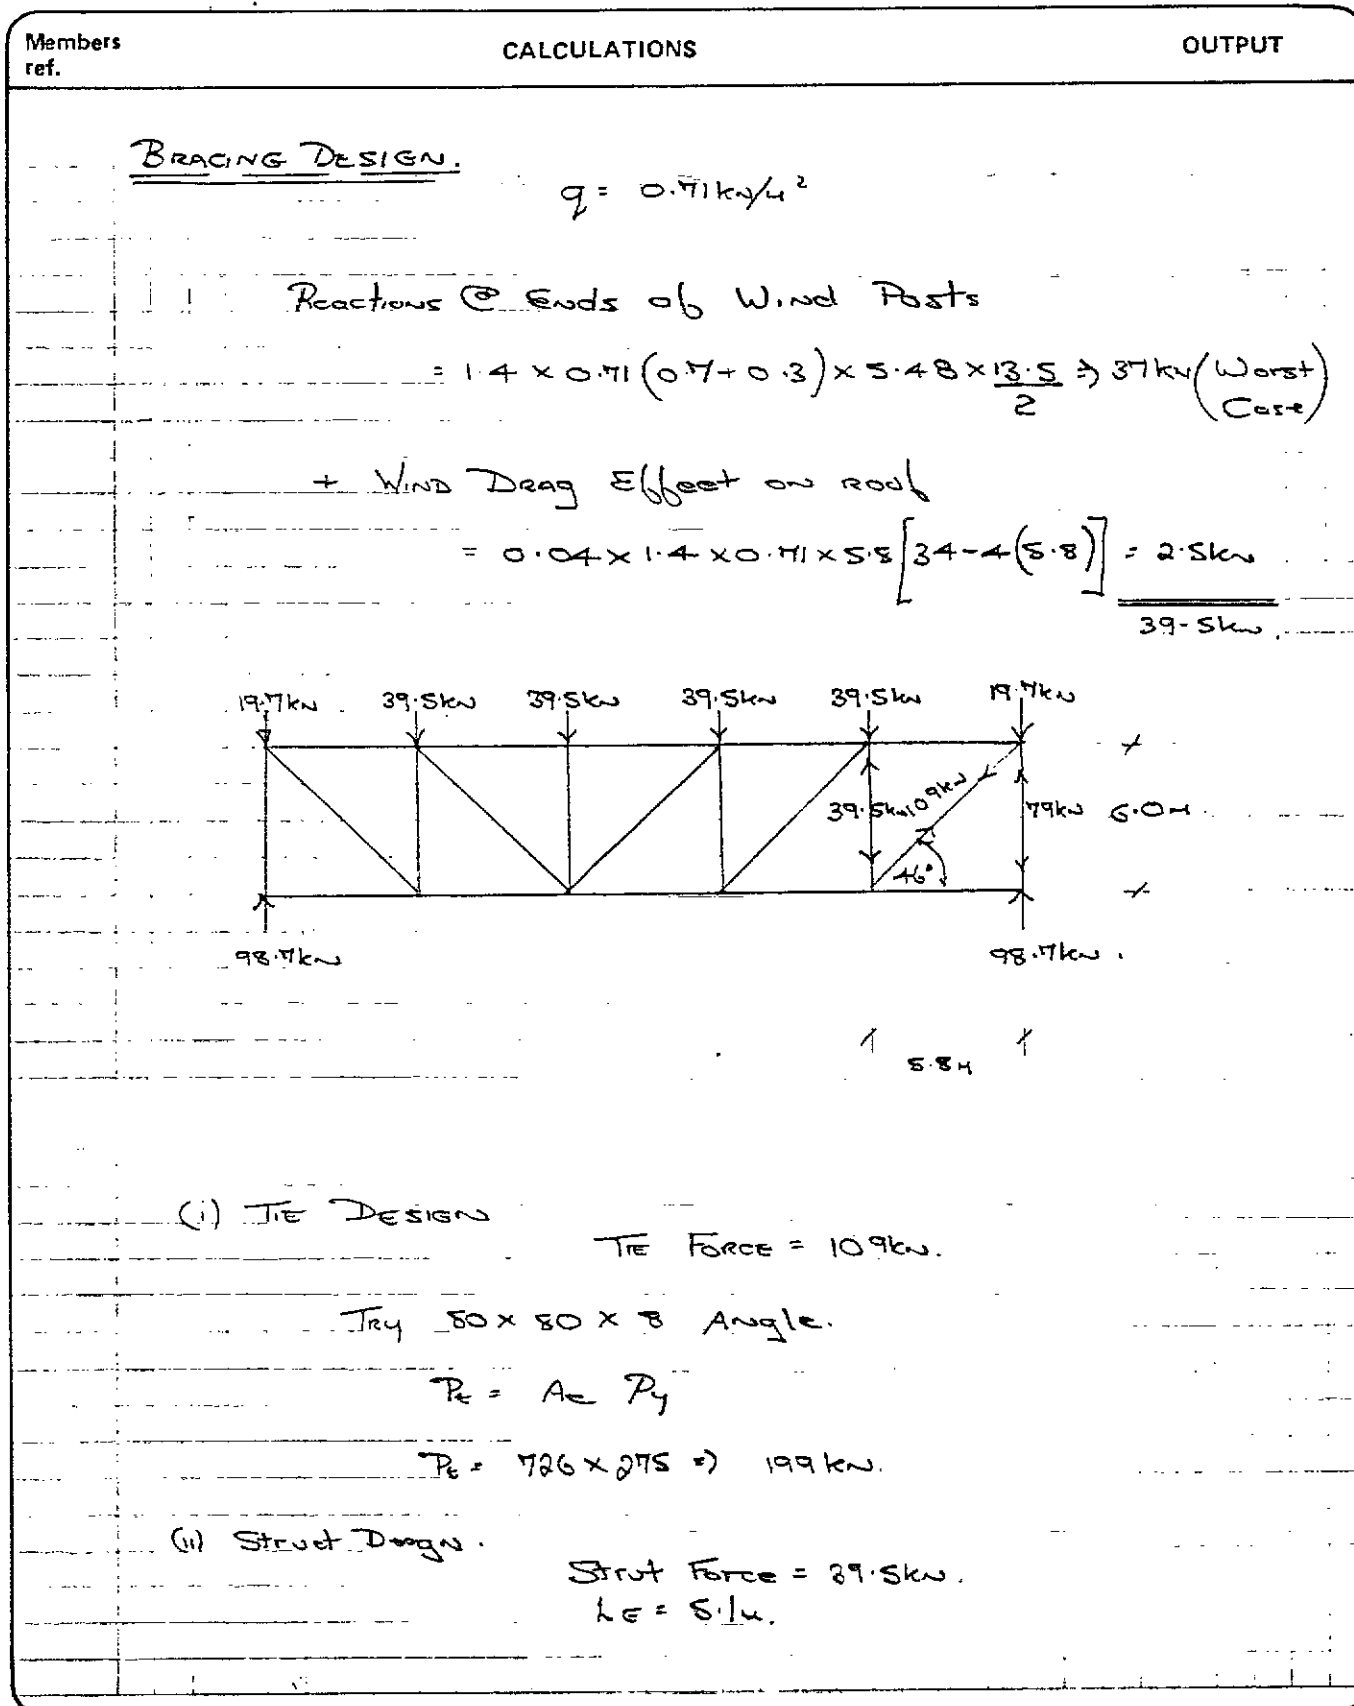 Members ref.
CALCULATIONS
OUTPUT
BRACING DESIGN.
q = 0.71kN/m²
Reactions @ Ends of Wind Posts
= 1.4 × 0.71 (0.7 + 0.3) × 5.48 × 13.5/2 => 37kN (Worst Case)
+ WIND Drag Effect on roof
= 0.04 × 1.4 × 0.71 × 5.8 [34-4(5.8)] = 2.5kN
39.5kN.
19.7kN 39.5kN 39.5kN 39.5kN 39.5kN 19.7kN
39.5kN 109kN 79kN 6.0M
46°
98.7kN 98.7kN.
5.8M
(i) TIE DESIGN
TIE FORCE = 109kN.
TRY 80 × 80 × 8 Angle.
Pt = Ae Py
Pt = 726 × 275 => 199kN.
(ii) Struct Design.
Strut Force = 39.5kN.
LE = 5.1m.